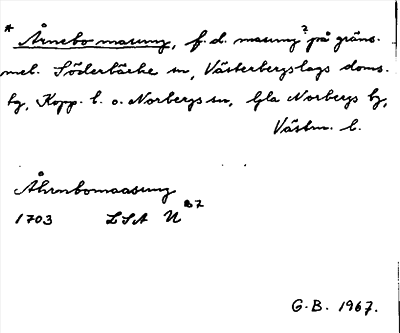 * Årnebo masung, f.d. masung? på gräns.
mel. Söderbärke sn, Västerbergslags doms.
bg, Kopp. l. o. Norbergs sn, Gla Norbergs bg,
Västm. l.
Åhrnbomaasung
1703 LSA U B7
G.B. 1967.